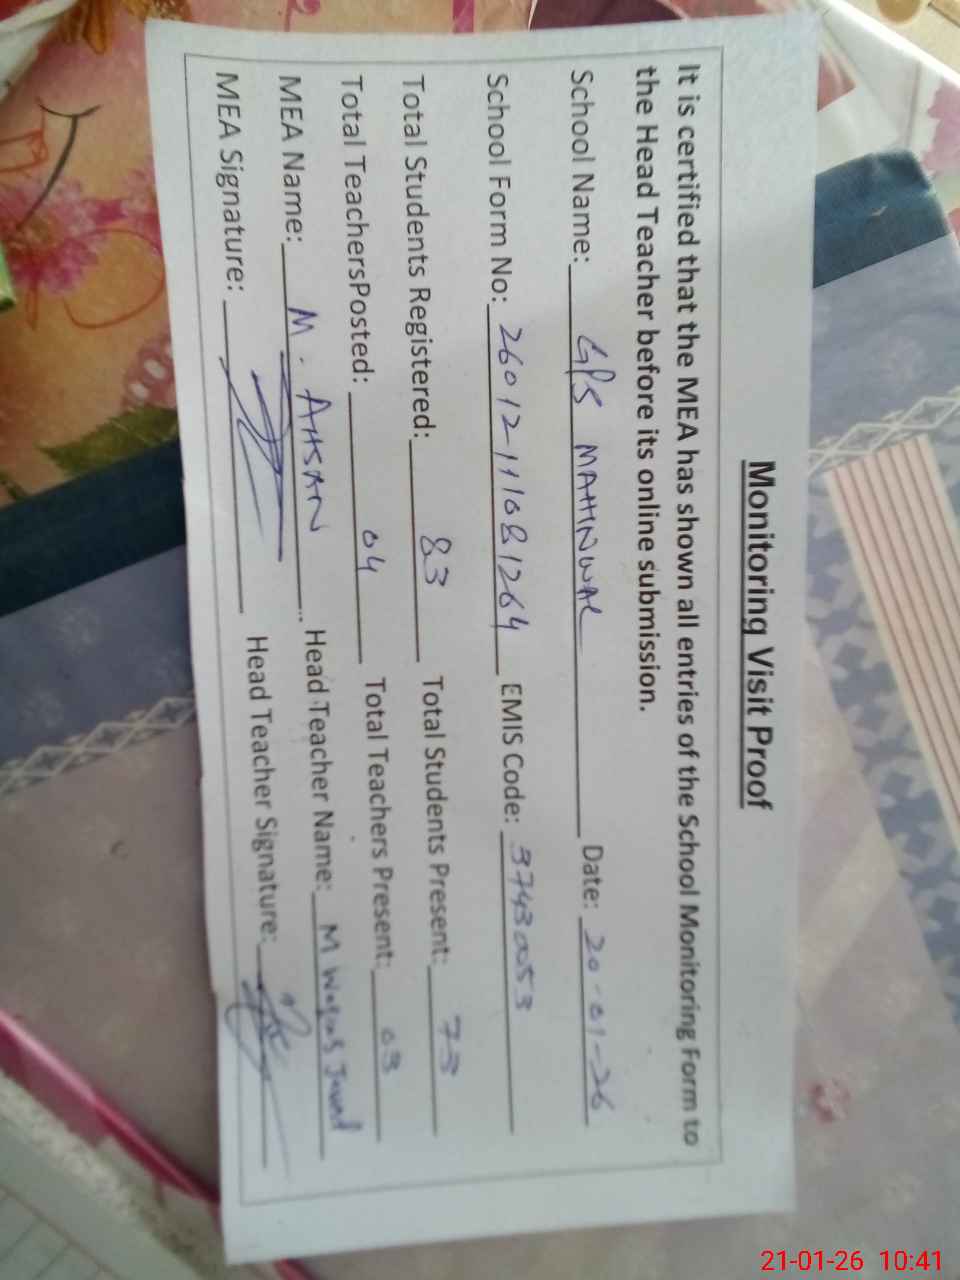 Monitoring Visit Proof
It is certified that the MEA has shown all entries of the School Monitoring Form to
the Head Teacher before its online submission.
School Name: GPS MAHINWAL Date: 20-01-26
School Form No: 26012111081264 EMIS Code: 37430053
Total Students Registered: 83 Total Students Present: 73
Total TeachersPosted: 04 Total Teachers Present: 03
MEA Name: M. AHSAN Head Teacher Name: M Waqas Javed
MEA Signature: Head Teacher Signature:
21-01-26 10:41